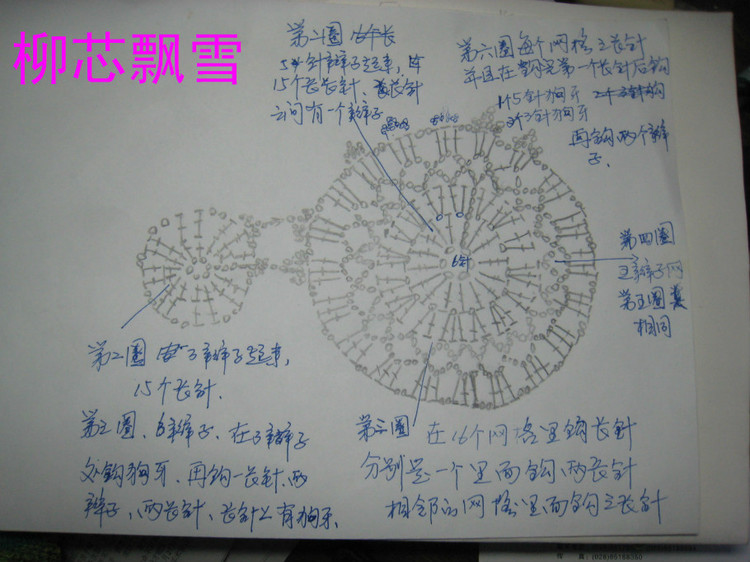 柳芯飘雪
第二圈
5针辫子起来,
15个长长针、长长针
之间有一个辫子
第六圈每个网格三长针
并且在钩完第一个长针后钩
1个5针狗牙
2个3针狗牙
再钩两个辫
子、
6针
第四圈
五辫子网
第五圈
相同
第二圈 3辫子起来,
15个长针.
第三圈、6辫子、在3辫子
处钩狗牙、再钩一长针、两
辫子、两长针、长针上有狗牙、
第三圈 在16个网格里钩长针
分别是一个里面钩两长针
相邻的网格里面钩三长针